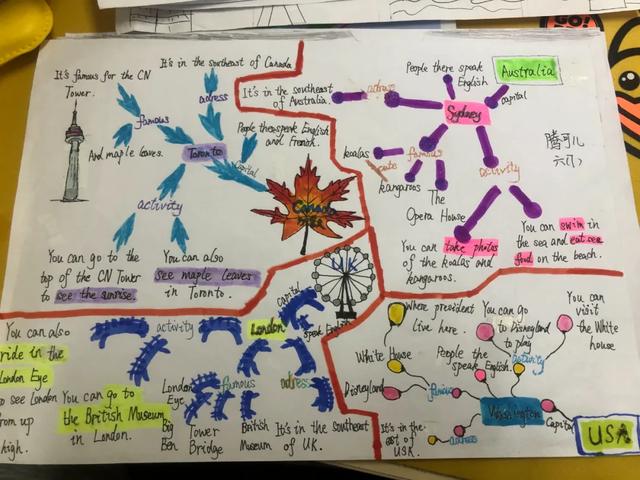 It's famous for the CN
Tower.
It's in the southeast of Canada
famous
adress
And maple leaves.
Toronto
People there speak English
and French.
capital
activity
You can go to the
top of the CN Tower
to see the sunrise.
You can also
see maple leaves
in Toronto.
Australia
People there speak
English
capital
It's in the southeast
of Australia.
adress
Sydney
koalas
cute
famous
kangaroos
The
Opera House
activity
You can take photos
of the koalas and
kangaroos.
You can swim in
the sea and eat sea
food on the beach.
You can also
ride in the
London Eye
to see London
from up
high.
activity
London
Capital
speak English
You can go to
the British Museum
in London.
London
Eye
famous
adress
Big
Ben
Tower
Bridge
British
Museum
It's in the southeast
of UK.
Where president
live here.
You can go
to Disneyland
to play
You can
visit
the White
house
White House
People the
speak English.
activity
Disneyland
famous
Washington
Capital
It's in the
east of
USA.
adress
USA